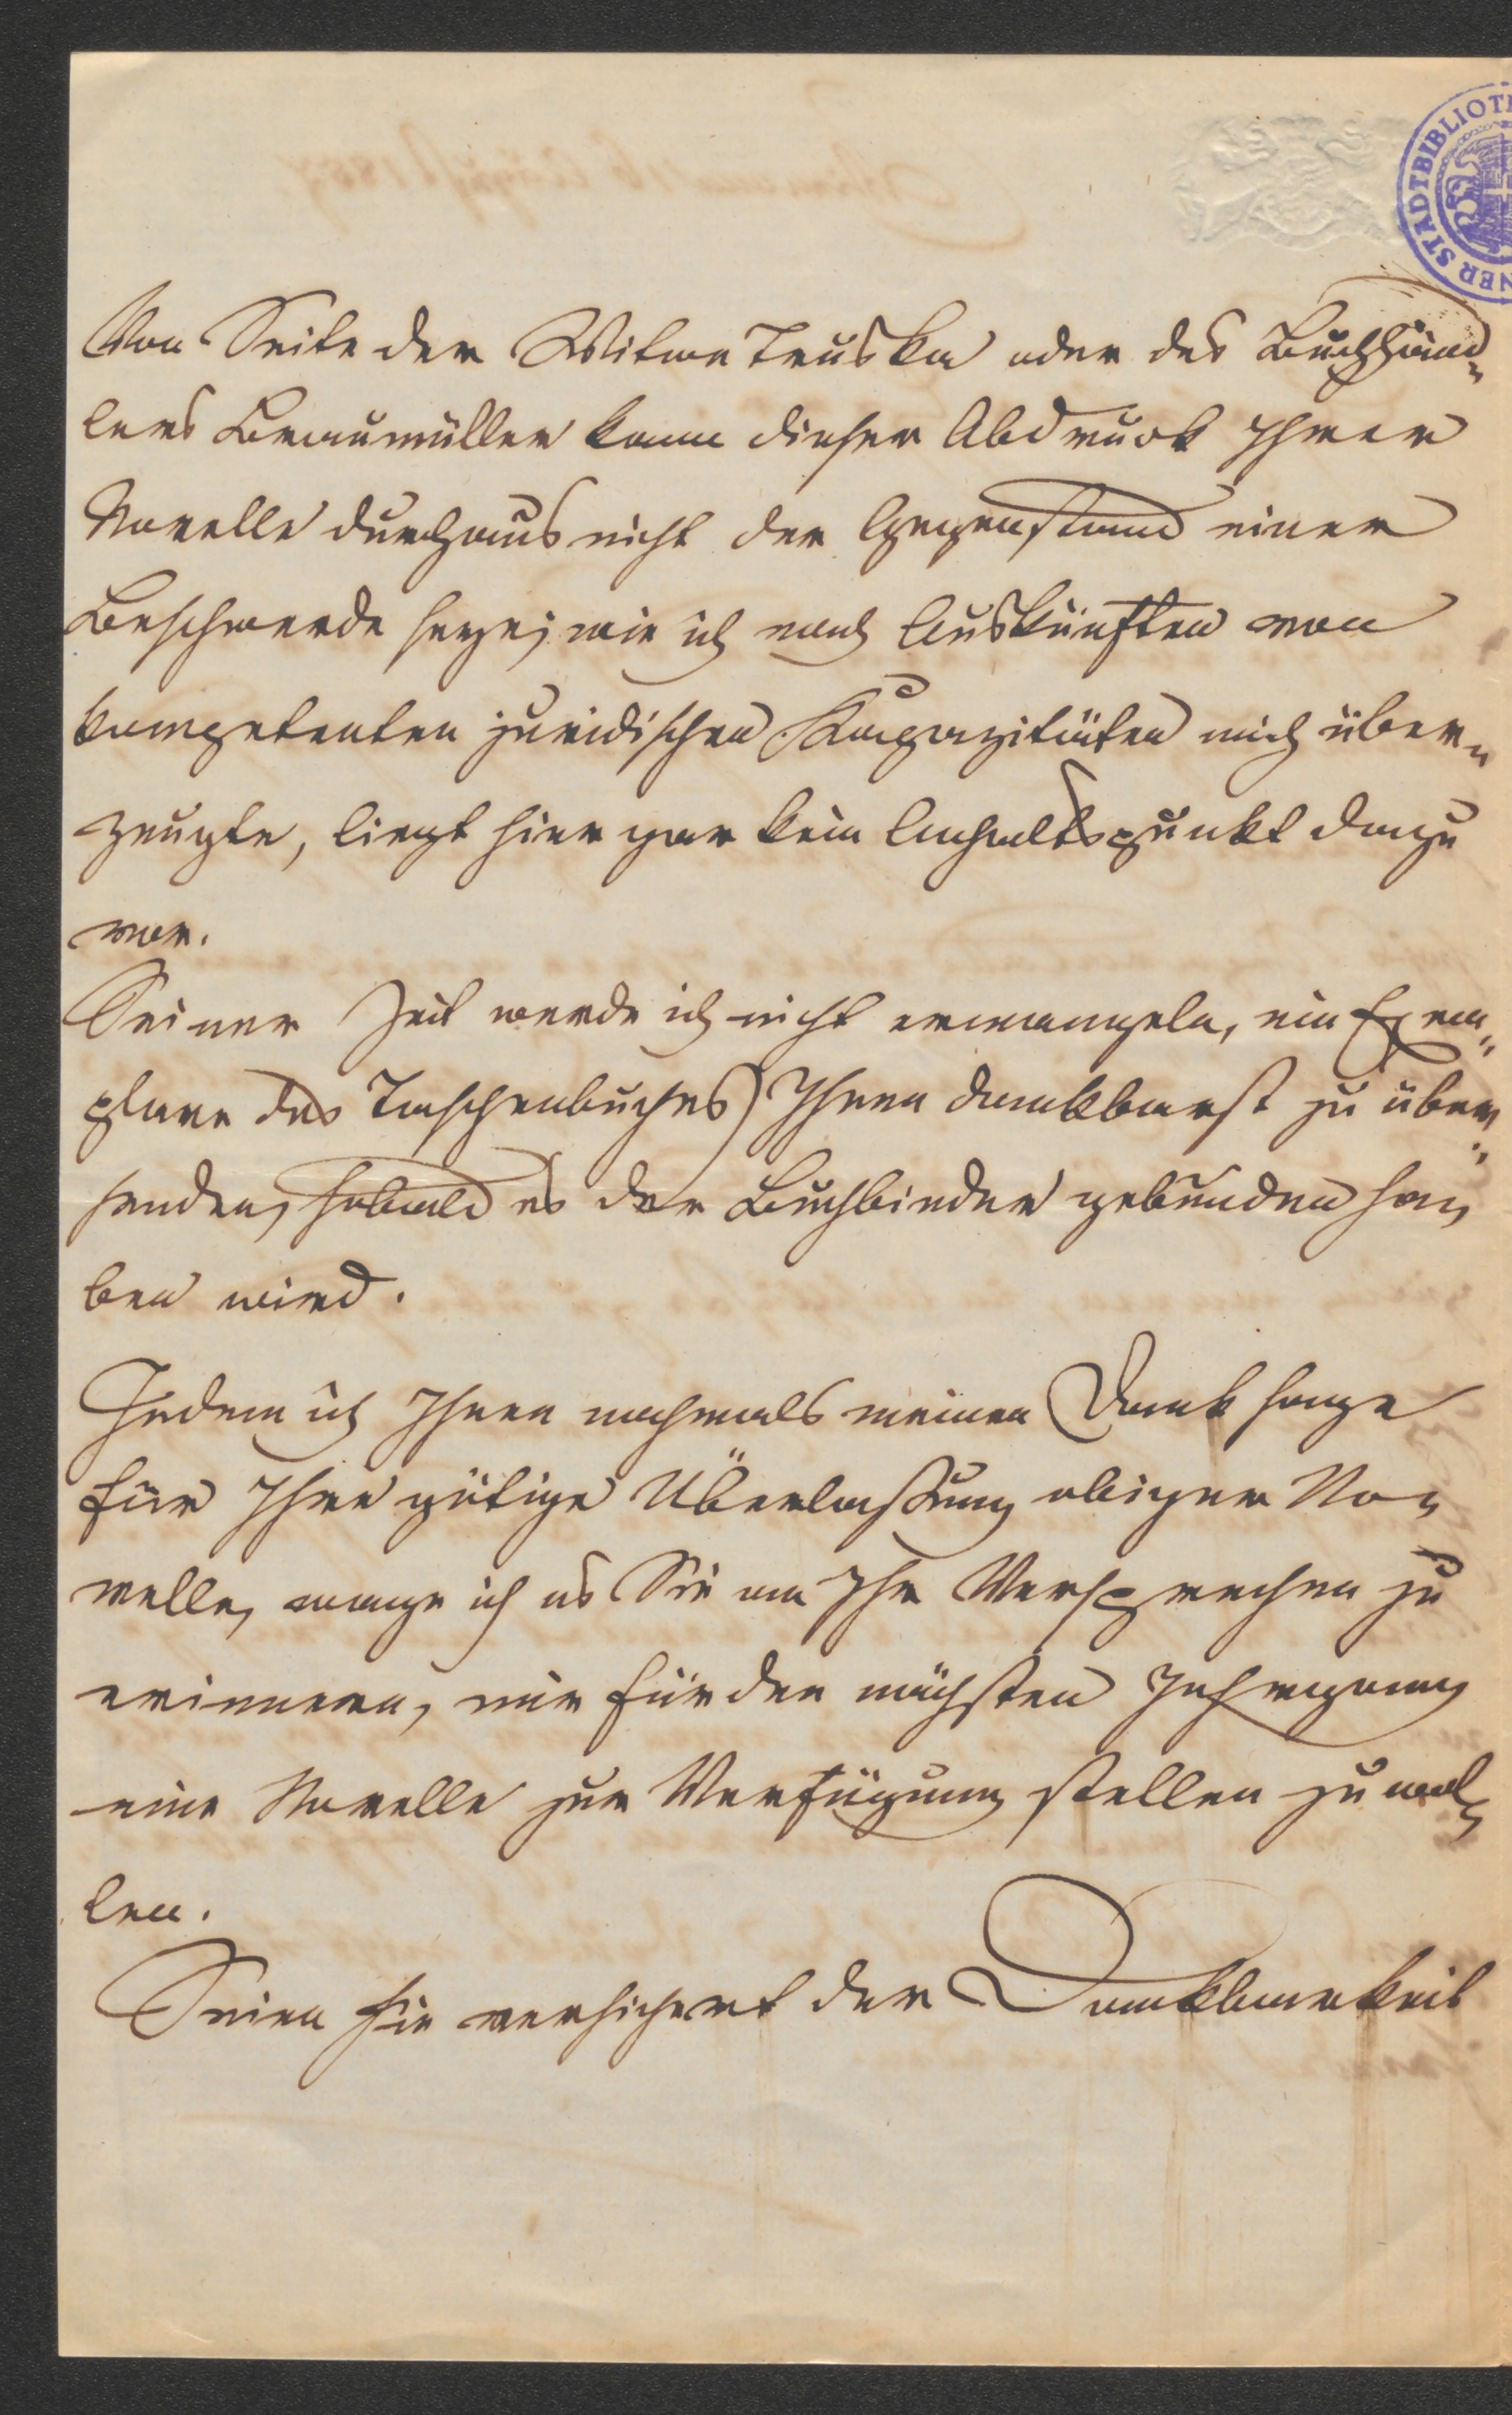 Von Seite der Witwe Truska oder des Buchhänd-
lers Braumüller kann dieser Abdruck Ihrer
Novelle durchaus nicht der Gegenstand einer
Beschwerde seyn; wie ich nach Auskünften von
kompetenten juridischen Kapazitäten mich über-
zeugte, liegt hier gar kein Anhaltspunkt dazu
vor.
Seiner Zeit werde ich nicht ermangeln, ein Exem-
plare des Taschenbuches Ihnen dankbarst zu über-
senden, sobald es der Buchbinder gebunden ha-
ben wird.
Indem ich Ihnen nochmals meinen Dank sage
für Ihre gütige Überlassung obiger No-
velle, wage ich es Sie an Ihr Versprechen zu
erinnern, mir für den nächsten Jahrgang
eine Novelle zur Verfügung stellen zu wol-
len.
Seien Sie versichert der Dankbarkeit
NER STADTBIBLIOTH